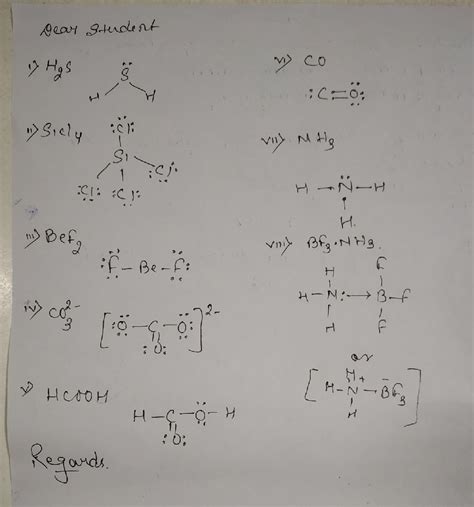 Dear Student
i) H2S
S
H H
ii) SiCl4
:Cl:
Si
Cl:
:Cl: :Cl:
iii) BeF2
:F – Be – F:
iv) CO3 2-
[:O – C – O:]2-
:O:
v) HCOOH
H – C – O – H
:O:
Regards.
vi) CO
:C=O:
vii) NH3
H – N – H
H
viii) BF3·NH3.
H F
H – N: → B – F
H F
or
H
[H – N+ – BF3]
H